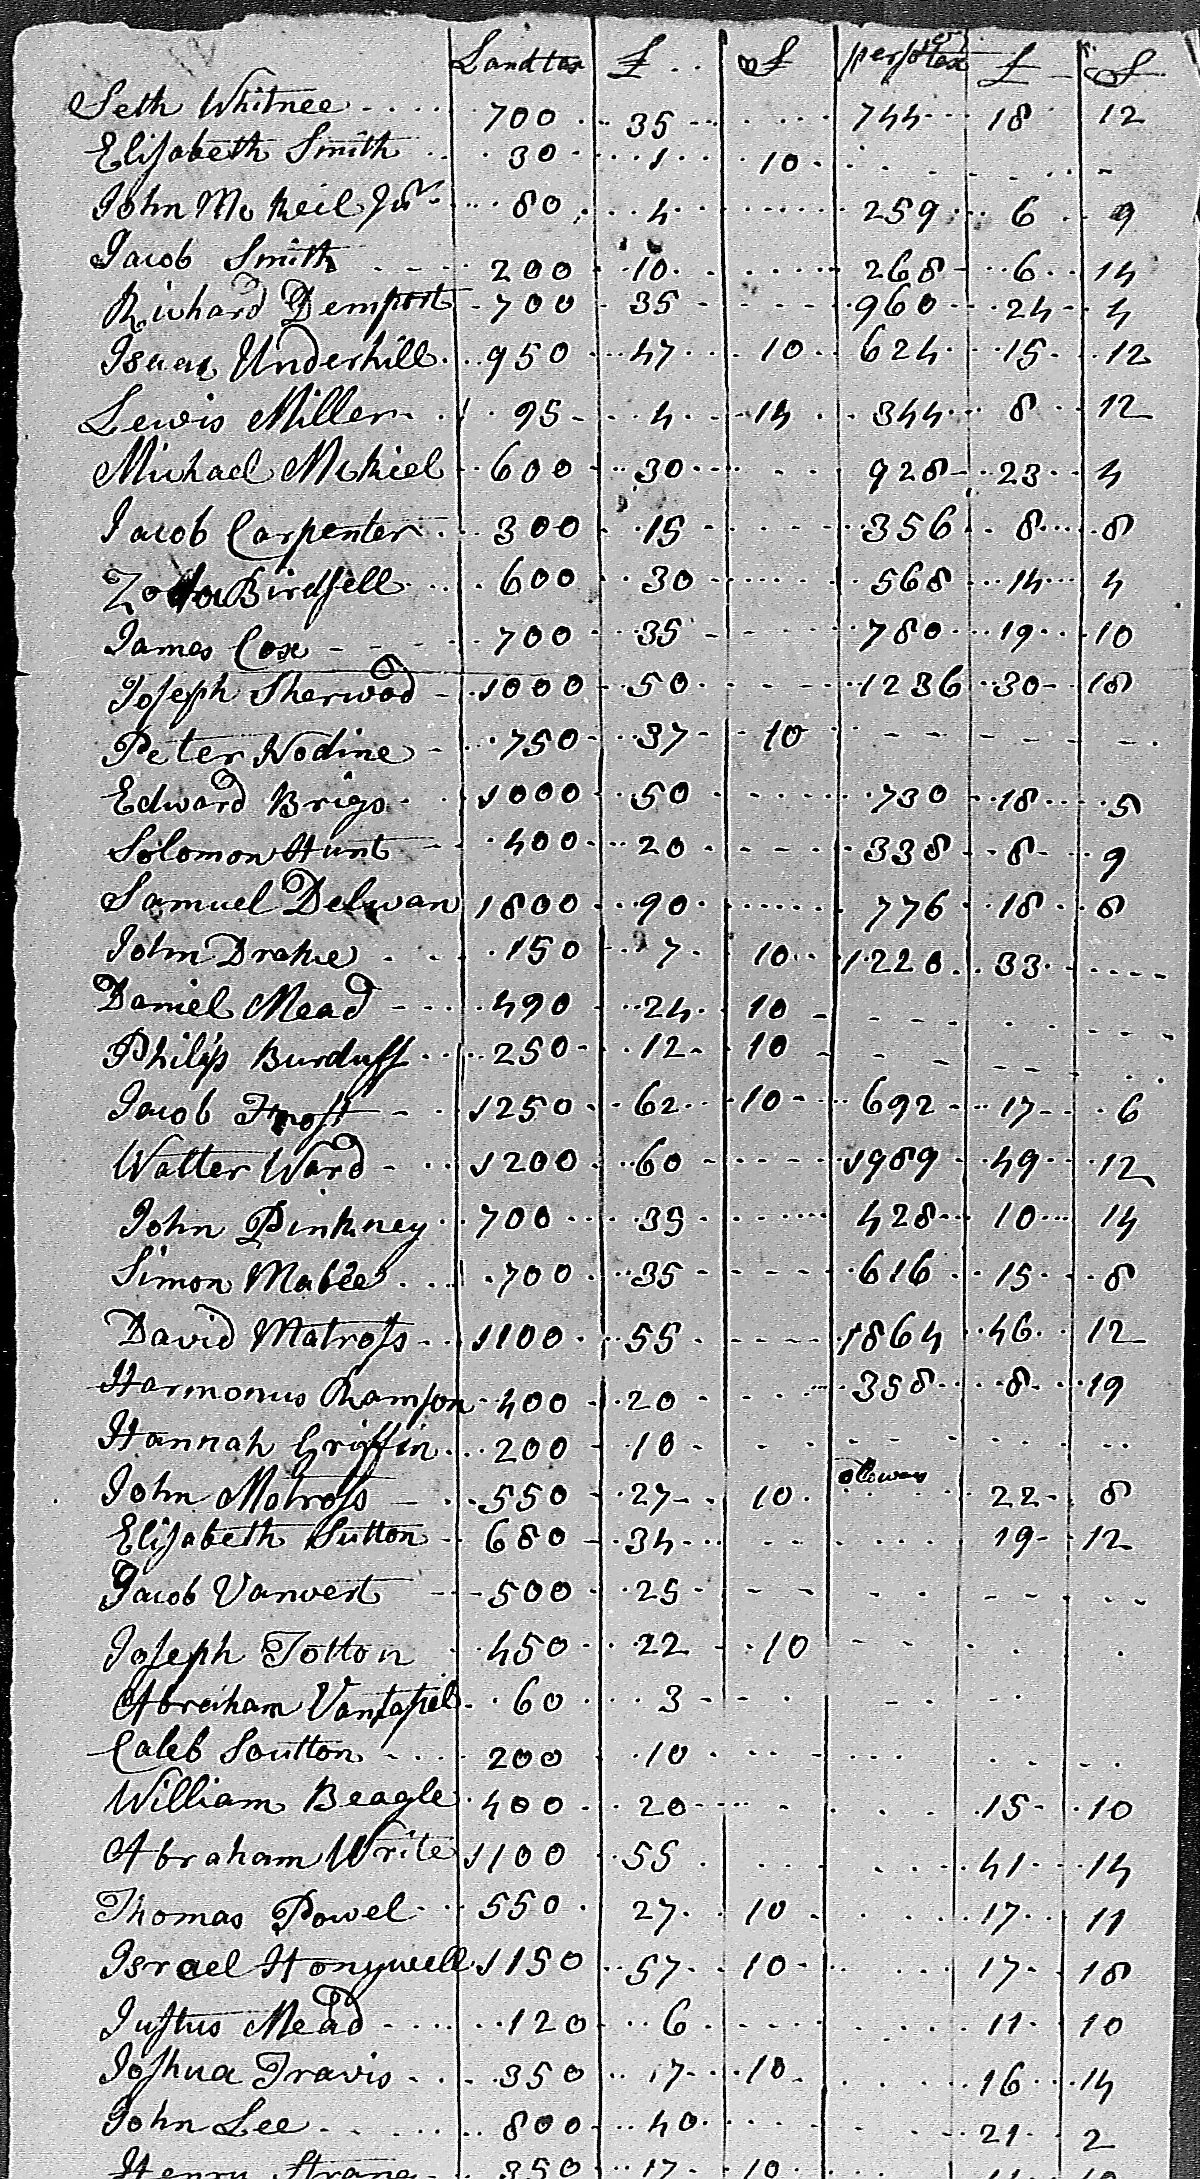 Landtax £ S persl tax £ S
Seth Whitnee 700 35 744 18 12
Elisabeth Smith 30 1 10
John McKeil Jur 80 4 259 6 9
Jacob Smith 200 10 268 6 14
Richard Demport 700 35 960 24 4
Isaac Underhill 950 47 10 624 15 12
Lewis Miller 95 4 14 344 8 12
Michael McKiel 600 30 928 23 4
Jacob Carpenter 300 15 356 8 8
Birdsell 600 30 568 14 4
James Cox 700 35 780 19 10
Joseph Sherwod 1000 50 1236 30 18
Peter Nodine 750 37 10
Edward Brigs 1000 50 730 18 5
Solomon Hunt 400 20 338 8 9
Samuel Delwan 1800 90 776 18 8
John Drake 150 7 10 1220 33
Daniel Mead 490 24 10
Philip Burduff 250 12 10
Jacob Frost 1250 62 10 692 17 6
Walter Ward 1200 60 1989 49 12
John Pinkney 700 35 428 10 14
Simon Mabee 700 35 616 15 8
David Matross 1100 55 1864 46 12
Harmonus Ramson 400 20 358 8 19
Hannah Griffin 200 10
John Motross 550 27 10 22 8
Elisabeth Sutton 680 34 19 12
Jacob Vanwert 500 25
Joseph Totton 450 22 10
Abreiham 60 3
Caleb Soutton 200 10
William Beagle 400 20 15 10
Abraham Write 1100 55 41 14
Thomas Powel 550 27 10 17 11
Israel Honywell 1150 57 10 17 18
Justus Mead 120 6 11 10
Joshua Travis 350 17 10 16 14
John Lee 800 40 21 2
Henry Strang 350 17 10